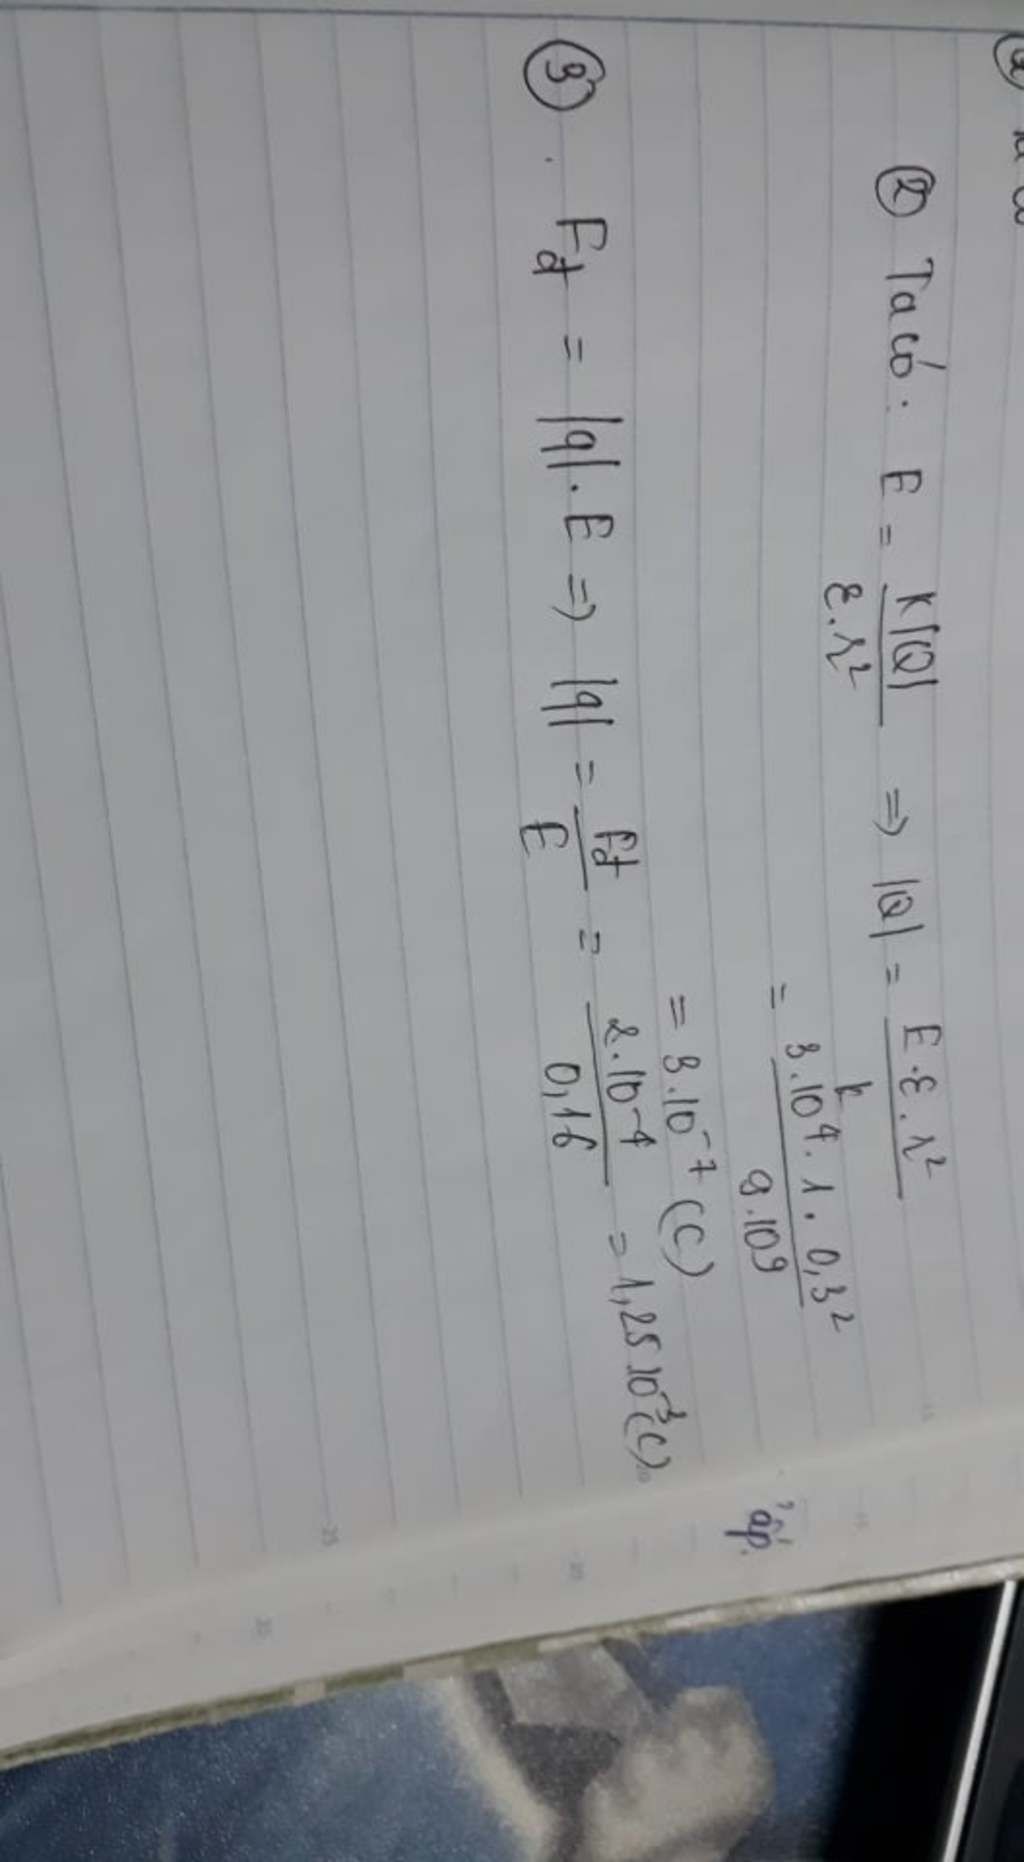 ② Ta có: E = K|Q| / ε.r² => |Q| = E.ε.r² / k
= 3.10⁴.1.0,3² / 9.10⁹
= 3.10⁻⁷ (C)
③ . Fđ = |q|.E => |q| = Fđ / E = 2.10⁻⁴ / 0,16 = 1,25.10⁻³ (C).